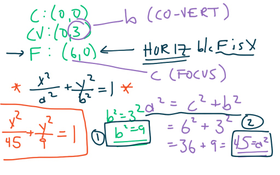 C: (0,0)
CV: (0,3) b (CO-VERT)
→ F: (6,0) ← HORIZ b/c F is X
c (FOCUS)
* x²/a² + y²/b² = 1 *
x²/45 + y²/9 = 1
① b² = 3²
b² = 9
a² = c² + b² ②
= 6² + 3²
= 36 + 9 = 45 = a²